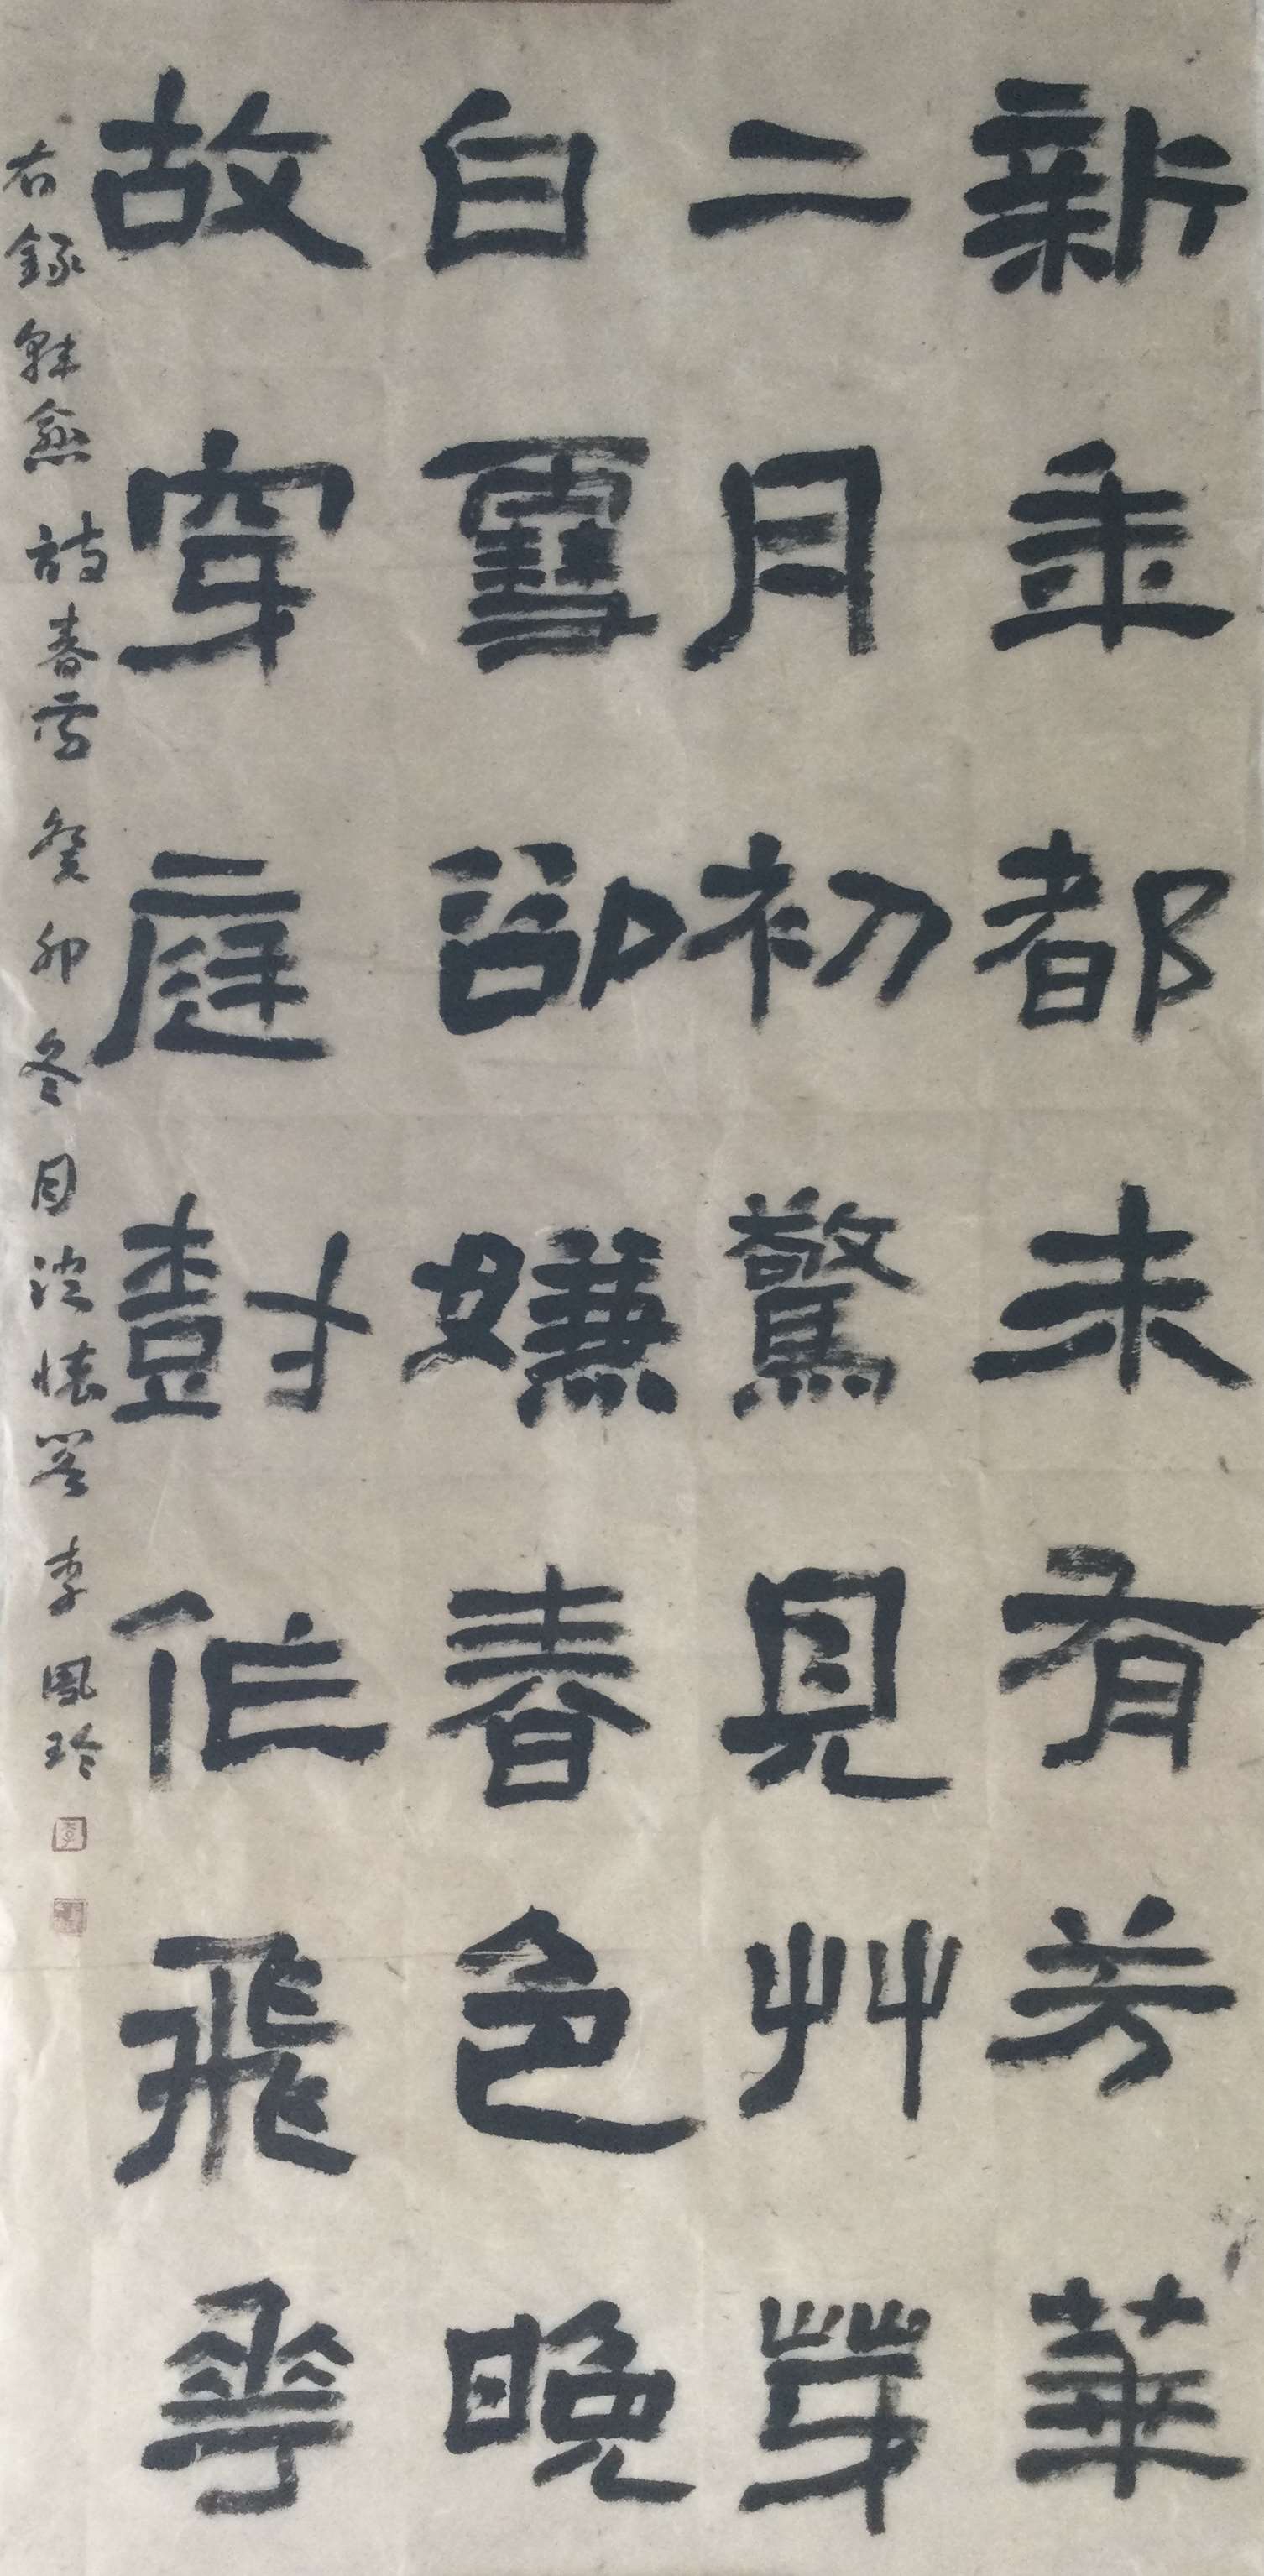 新年都未有芳華
二月初驚見艸芽
白雪卻嫌春色晚
故穿庭樹作飛華
右錄韩愈詩春雪癸卯冬月淡懷閣李鳳玲